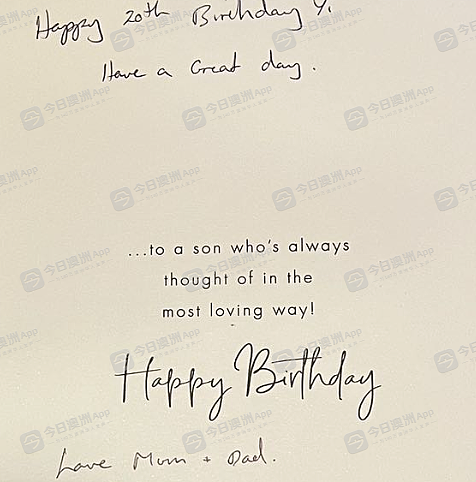 Happy 20th Birthday Y.
Have a Great day.
...to a son who's always
thought of in the
most loving way!
Happy Birthday
Love Mum + Dad.
今日澳洲App